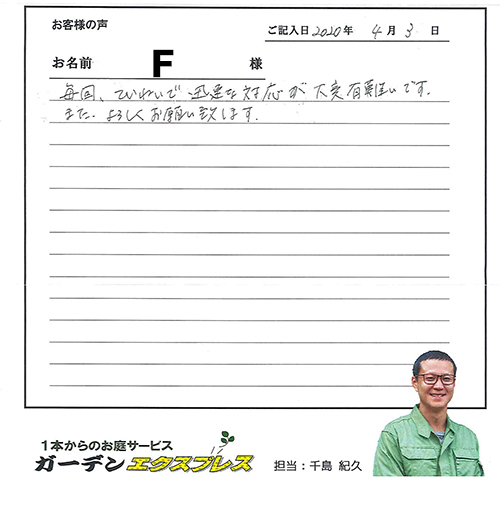 お客様の声
ご記入日2020年 4月 3日
お名前 F 様
毎回、ていねいで迅速な対応が大変有難いです。
また、よろしくお願い致します。
1本からのお庭サービス
ガーデンエクスプレス
担当:千島 紀久